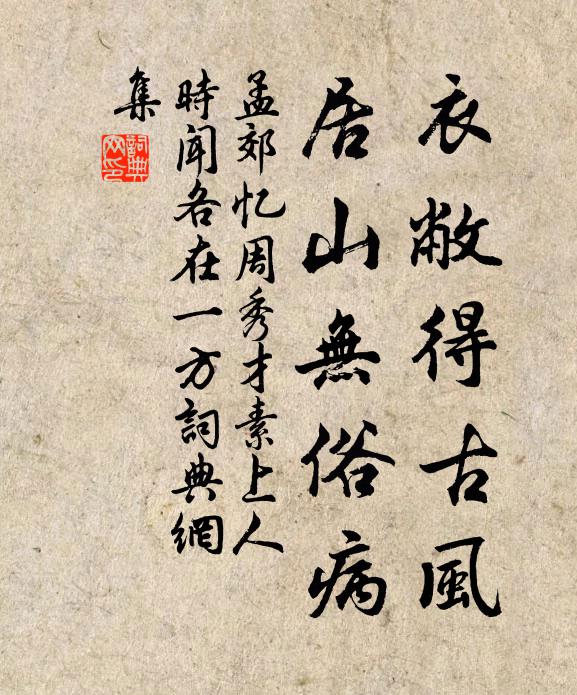 衣敝得古風
居山無俗病
孟郊忆周秀才素上人
時闻各在一方詞典網
集
詞典網印